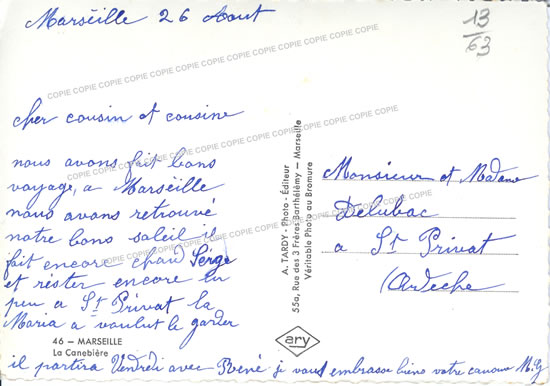 Marseille 26 Aout
13
63
COPIE COPIE COPIE COPIE COPIE COPIE COPIE COPIE COPIE COPIE
cher cousin et cousine
nous avons fait bons
voyage, a Marseille
nous avons retrouvé
notre bons soleil il
fait encore chau Serge
et réster encore un
peu a St Privat la
Maria a voulut le garder
il partira Vendredi avec René je vous embrasse biens votre M.G
46 — MARSEILLE
La Canebière
A. TARDY - Photo - Éditeur
55a, Rue des 3 Frères Barthélémy — Marseille
Véritable Photo au Bromure
ary
Monsieur et Madame
Delubac
a St Privat
(Ardeche)